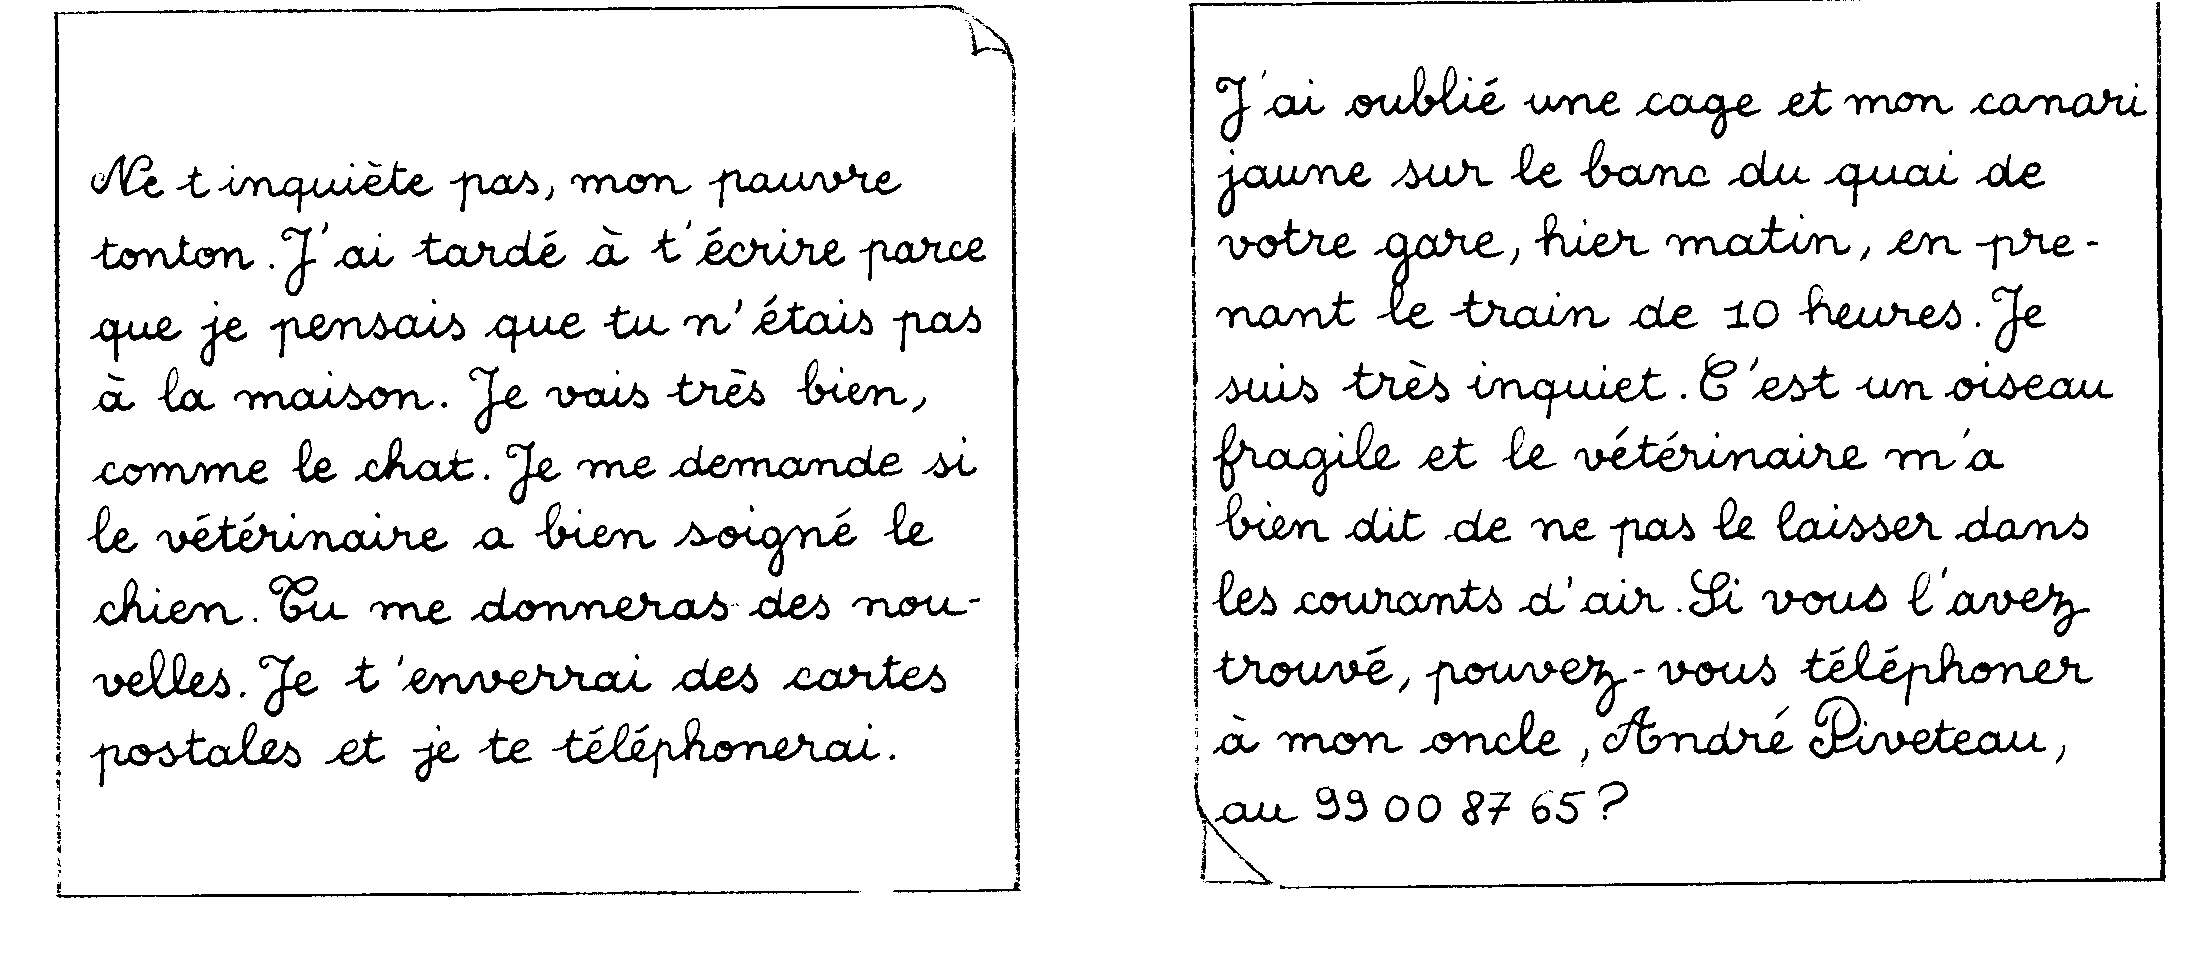 Ne t inquiète pas, mon pauvre
tonton. J'ai tardé à t'écrire parce
que je pensais que tu n'étais pas
à la maison. Je vais très bien,
comme le chat. Je me demande si
le vétérinaire a bien soigné le
chien. Tu me donneras des nou-
velles. Je t'enverrai des cartes
postales et je te téléphonerai.
J'ai oublié une cage et mon canari
jaune sur le banc du quai de
votre gare, hier matin, en pre-
nant le train de 10 heures. Je
suis très inquiet. C'est un oiseau
fragile et le vétérinaire m'a
bien dit de ne pas le laisser dans
les courants d'air. Si vous l'avez
trouvé, pouvez-vous téléphoner
à mon oncle, André Piveteau,
au 99 00 87 65?